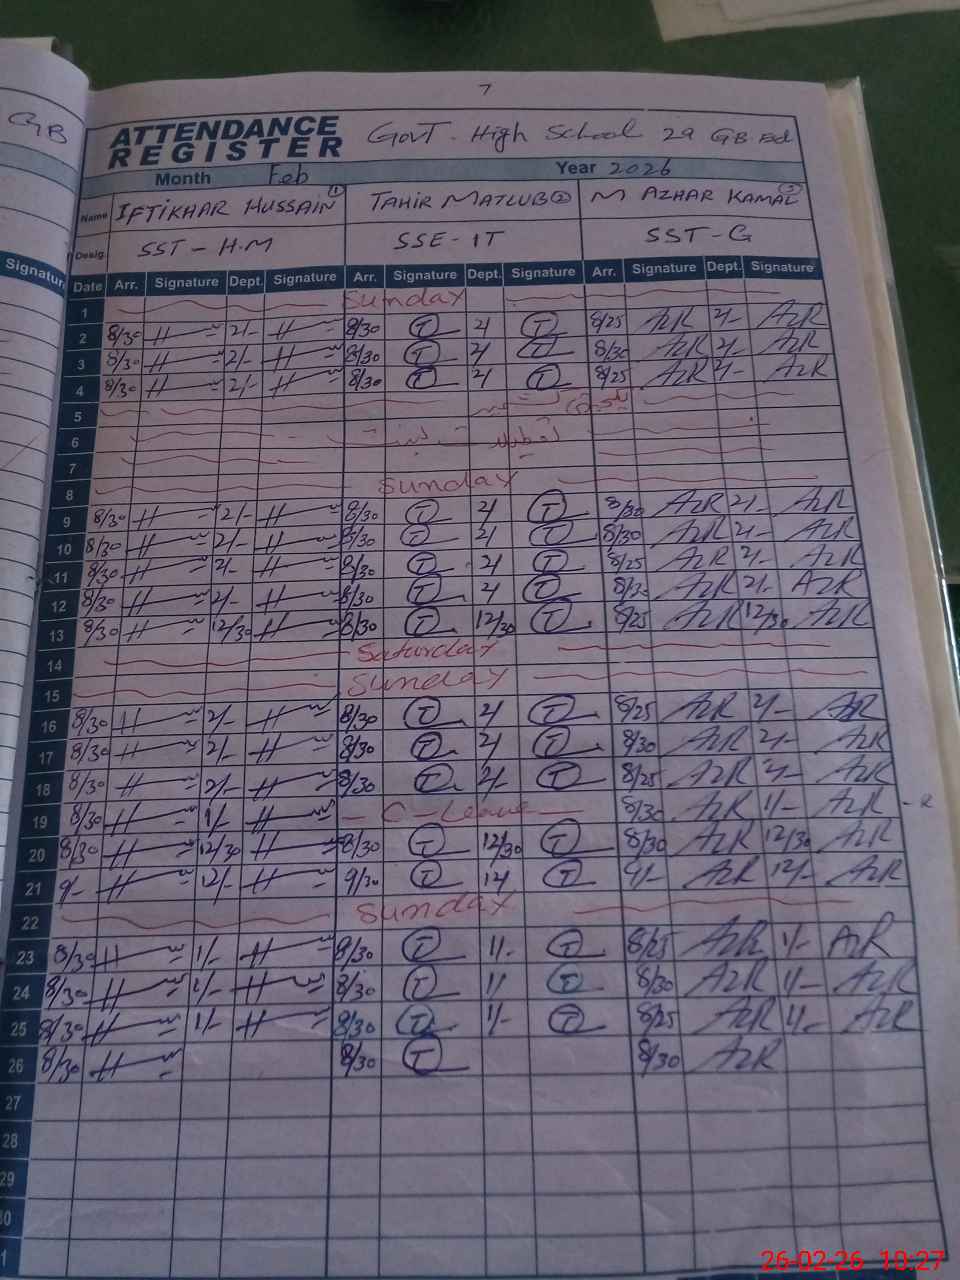 7
GB
ATTENDANCE REGISTER Govt. High School 29 GB. Fd
Month Feb Year 2026
Name IFTIKHAR HUSSAIN 1 TAHIR MATLUB 2 M AZHAR KAMAL 3
Desig. SST - H.M SSE - IT SST - G
Signature
Date Arr. Signature Dept. Signature Arr. Signature Dept. Signature Arr. Signature Dept. Signature
1 Sunday
2 8/30 H 2/- H 8/30 T 2/ T 8/25 AzR 2/- AzR
3 8/30 H 2/- H 8/30 T 2/ T 8/30 AzR 2/- AzR
4 8/30 H 2/- H 8/30 T 2/ T 8/25 AzR 2/- AzR
5
6
7
8 Sunday
9 8/30 H 2/- H 8/30 T 2/ T 8/30 AzR 2/- AzR
10 8/30 H 2/- H 8/30 T 2/ T 8/30 AzR 2/- AzR
11 8/30 H 2/- H 8/30 T 2/ T 8/25 AzR 2/- AzR
12 8/30 H 2/- H 8/30 T 2/ T 8/30 AzR 2/- AzR
13 8/30 H 12/30 H 8/30 T 12/30 T 8/25 AzR 12/30 AzR
14 Saturday
15 Sunday
16 8/30 H 2/- H 8/30 T 2/ T 8/25 AzR 2/- AzR
17 8/30 H 2/- H 8/30 T 2/ T 8/30 AzR 2/- AzR
18 8/30 H 2/- H 8/30 T 2/- T 8/25 AzR 2/- AzR
19 8/30 H 1/- H - C-Leave - 8/30 AzR 1/- AzR
20 8/30 H 12/30 H 8/30 T 12/30 T 8/30 AzR 12/30 AzR
21 9/- H 12/- H 9/30 T 12/ T 9/- AzR 12/- AzR
22 Sunday
23 8/30 H 1/- H 8/30 T 1/- T 8/25 AzR 1/- AzR
24 8/30 H 1/- H 8/30 T 1/ T 8/30 AzR 1/- AzR
25 8/30 H 1/- H 8/30 T 1/- T 8/25 AzR 1/- AzR
26 8/30 H 8/30 T 8/30 AzR
27
28
29
30
1
26-02-26 10:27